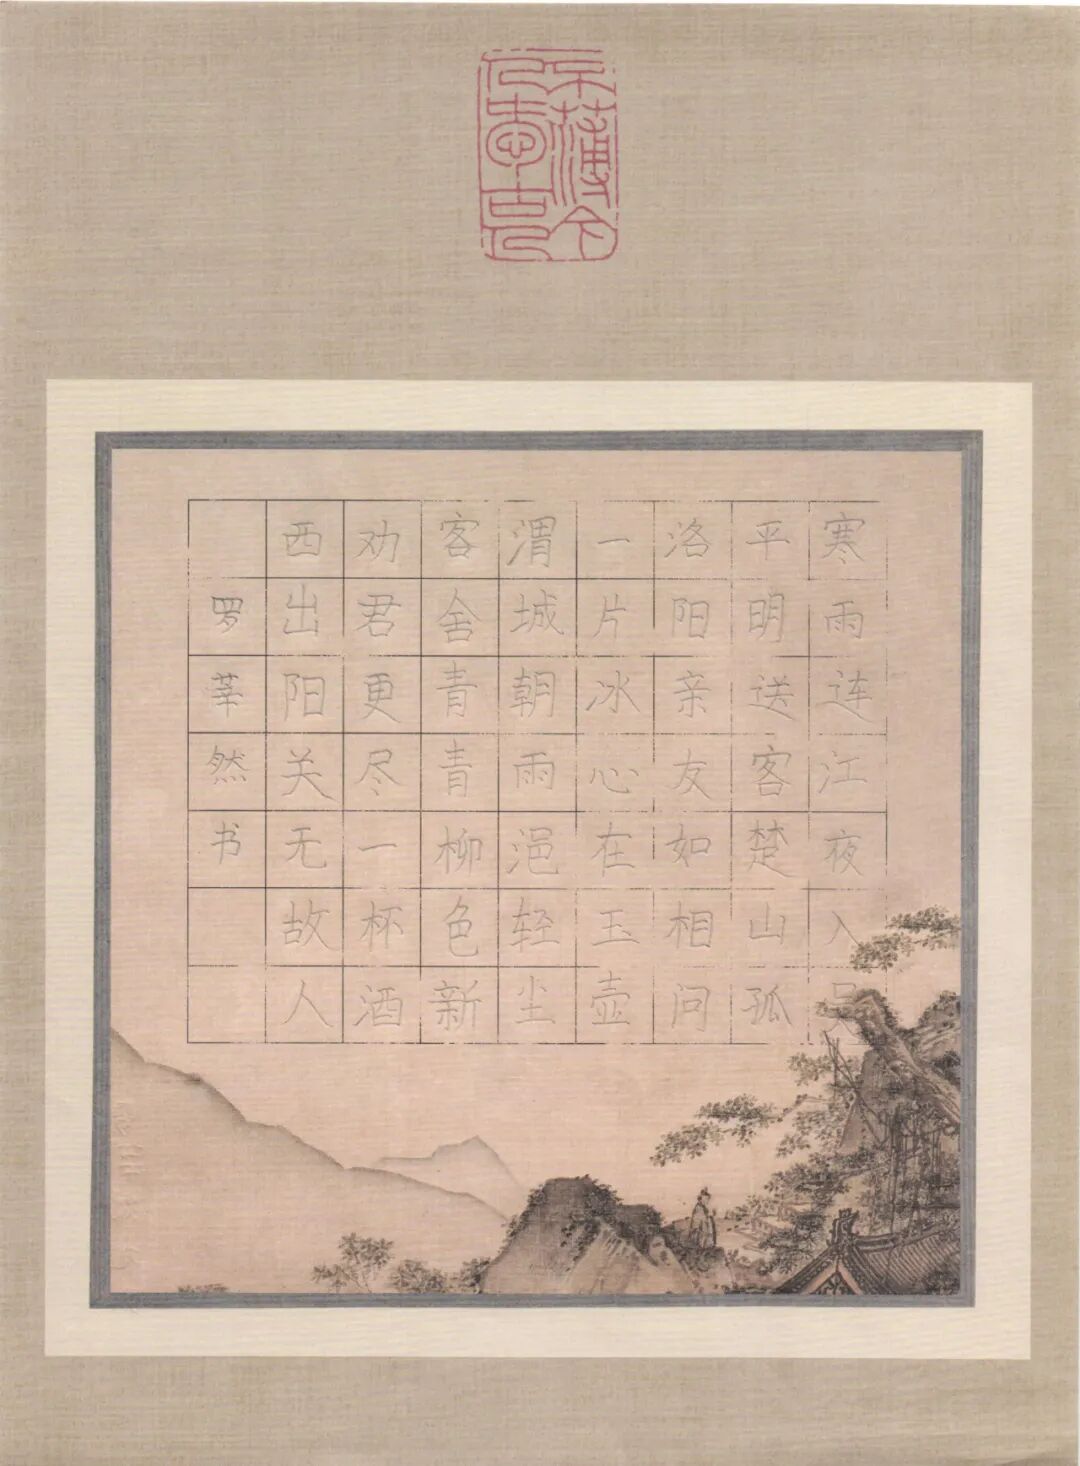 寒雨连江夜入吴
平明送客楚山孤
洛阳亲友如相问
一片冰心在玉壶
渭城朝雨浥轻尘
客舍青青柳色新
劝君更尽一杯酒
西出阳关无故人
罗莘然书